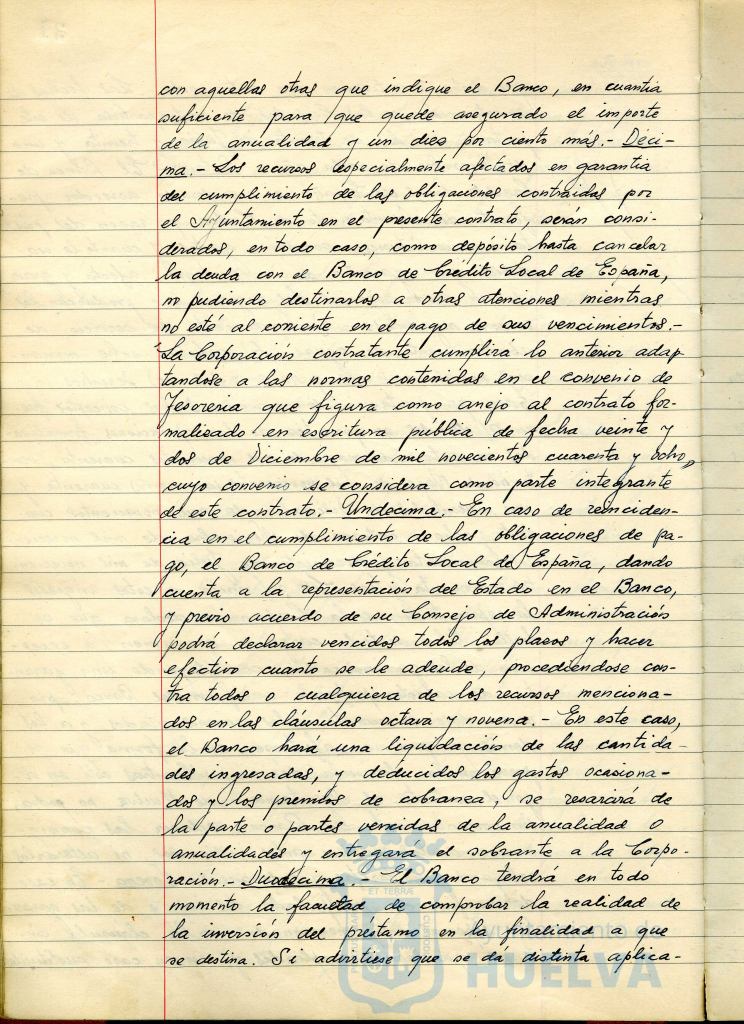 con aquellas otras que indique el Banco, en cuantia
suficiente para que quede asegurado el importe
de la anualidad y un diez por ciento más.- Déci-
ma.- Los recursos especialmente afectados en garantia
del cumplimiento de las obligaciones contraidas por
el Ayuntamiento en el presente contrato, serán consi-
derados, en todo caso, como depósito hasta cancelar
la deuda con el Banco de Crédito Local de España,
no pudiendo destinarlos a otras atenciones mientras
no esté al corriente en el pago de sus vencimientos.-
La Corporación contratante cumplirá lo anterior adap-
tandose a las normas contenidas en el convenio de
Tesoreria que figura como anejo al contrato for-
malizado en escritura pública de fecha veinte y
dos de Diciembre de mil novecientos cuarenta y ocho,
cuyo convenio se considera como parte integrante
de este contrato.- Undecima.- En caso de reinciden-
cia en el cumplimiento de las obligaciones de pa-
go, el Banco de Crédito Local de España, dando
cuenta a la representación del Estado en el Banco,
y previo acuerdo de su Consejo de Administración
podrá declarar vencidos todos los plazos y hacer
efectivo cuanto se le adeude, procediéndose con-
tra todos o cualquiera de los recursos menciona-
dos en las cláusulas octava y novena.- En este caso,
el Banco hará una liquidación de las cantida-
des ingresadas, y deducidos los gastos ocasiona-
dos y los premios de cobranza, se resarcirá de
la parte o partes vencidas de la anualidad o
anualidades y entregará el sobrante a la Corpo-
ración.- Duodecima.- El Banco tendrá en todo
momento la facultad de comprobar la realidad de
la inversión del préstamo en la finalidad a que
se destina. Si advirtiese que se dá distinta aplica-
HUELVA